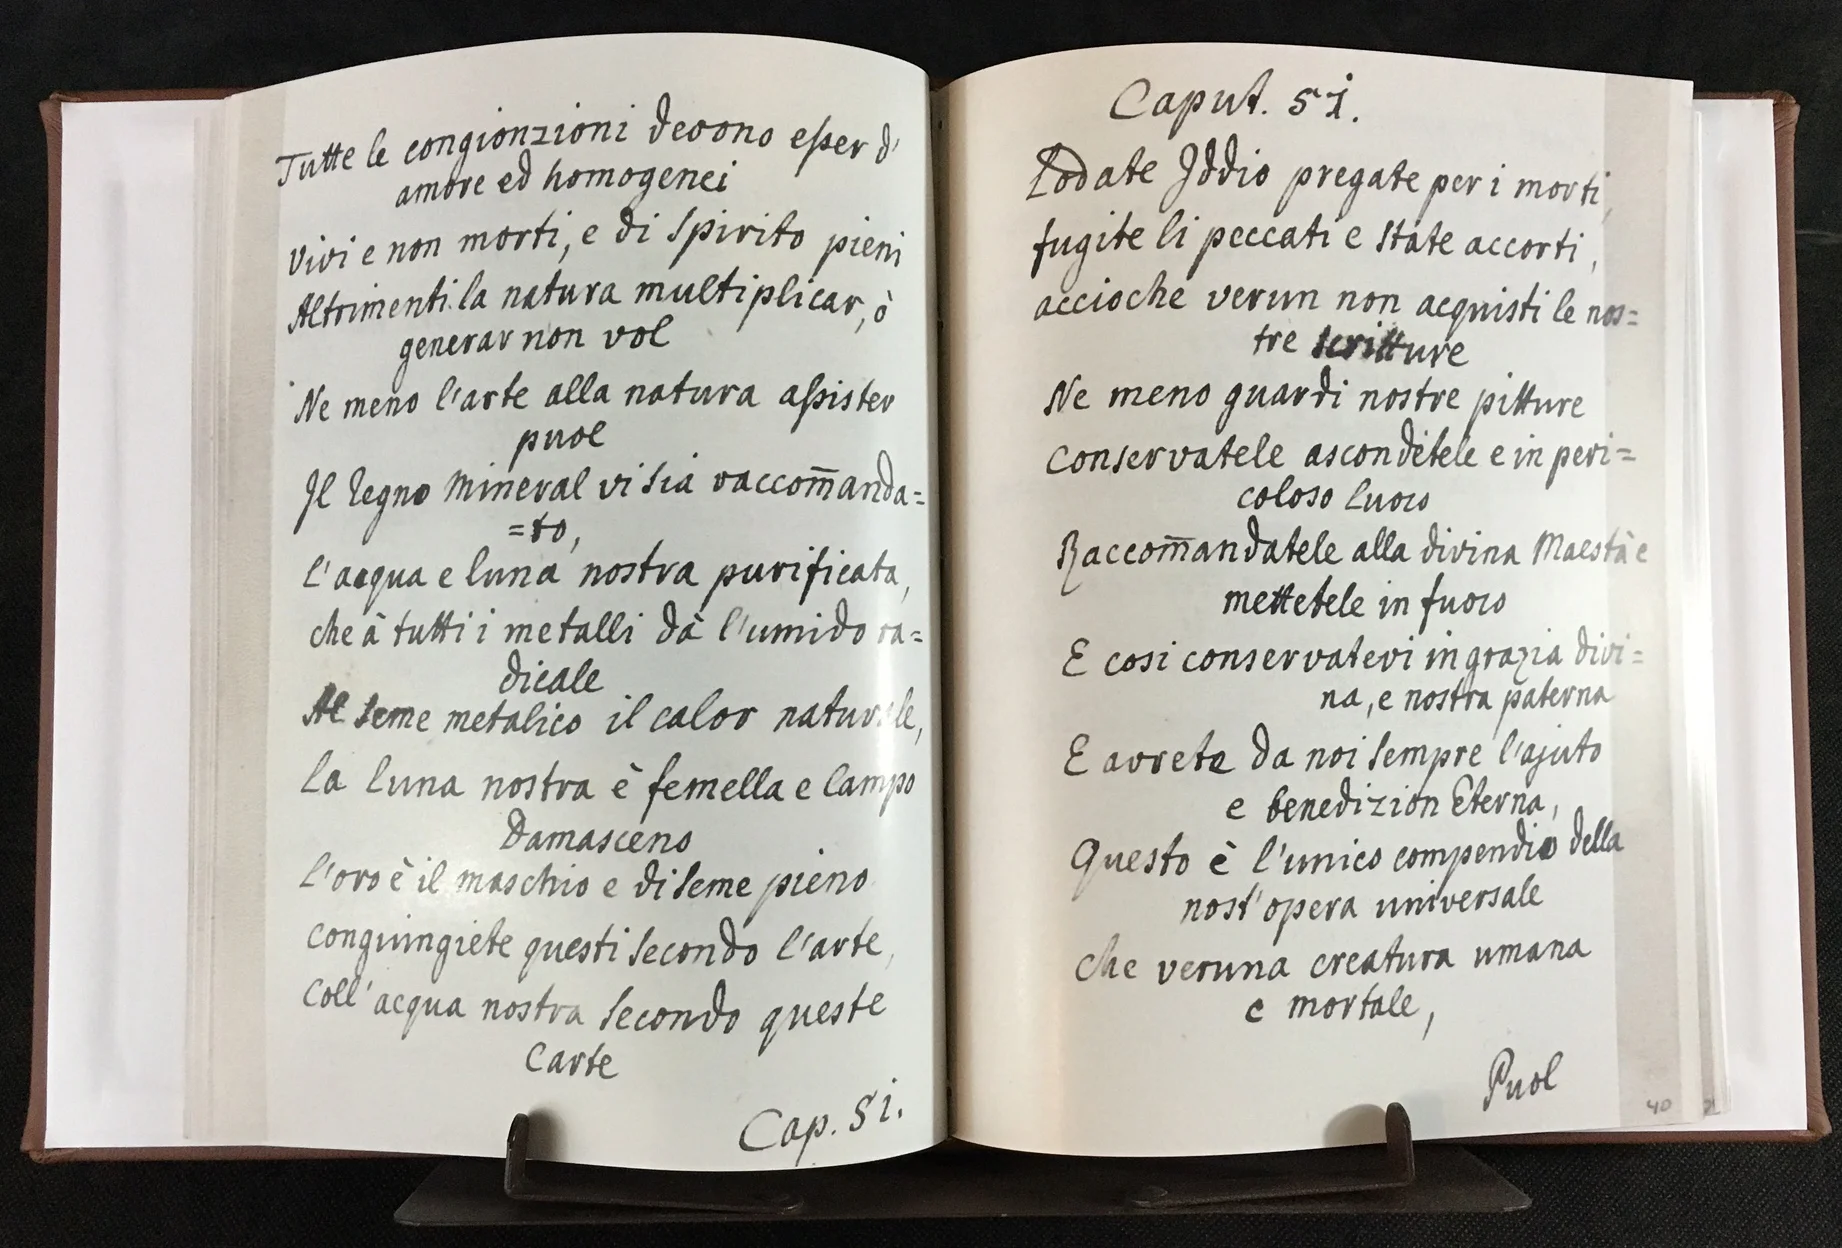 Tutte le congionzioni devono esser d'
amore ed homogenei
vivi e non morti, e di Spirito pieni
Altrimenti la natura multiplicar, ò
generar non vol
Ne meno l'arte alla natura assister
puol
Il Regno Mineral vi sia raccom̅anda=
=to,
l'acqua e luna nostra purificata,
che à tutti i metalli dà l'umido ra=
dicale
Al seme metalico il calor naturale,
La luna nostra è femella e lampo
Damasceno
l'oro è il maschio e di seme pieno
conguingiete questi secondo l'arte,
Coll'acqua nostra secondo queste
Carte
Cap. 51.
Caput. 51.
Lodate Iddio pregate per i morti,
fugite li peccati e state accorti,
accioche verun non acquisti le nos=
tre scritture
Ne meno guardi nostre pitture
Conservatele ascondetele e in peri=
coloso luoco
Raccom̅andatele alla divina Maestà e
mettetele in fuoco
E cosi conservatevi in grazia divi=
na, e nostra paterna
E avrete da noi sempre l'ajuto
e benedizion Eterna,
Questo è l'unico compendio della
nost' opera universale
che veruna creatura umana
e mortale,
Puol
40